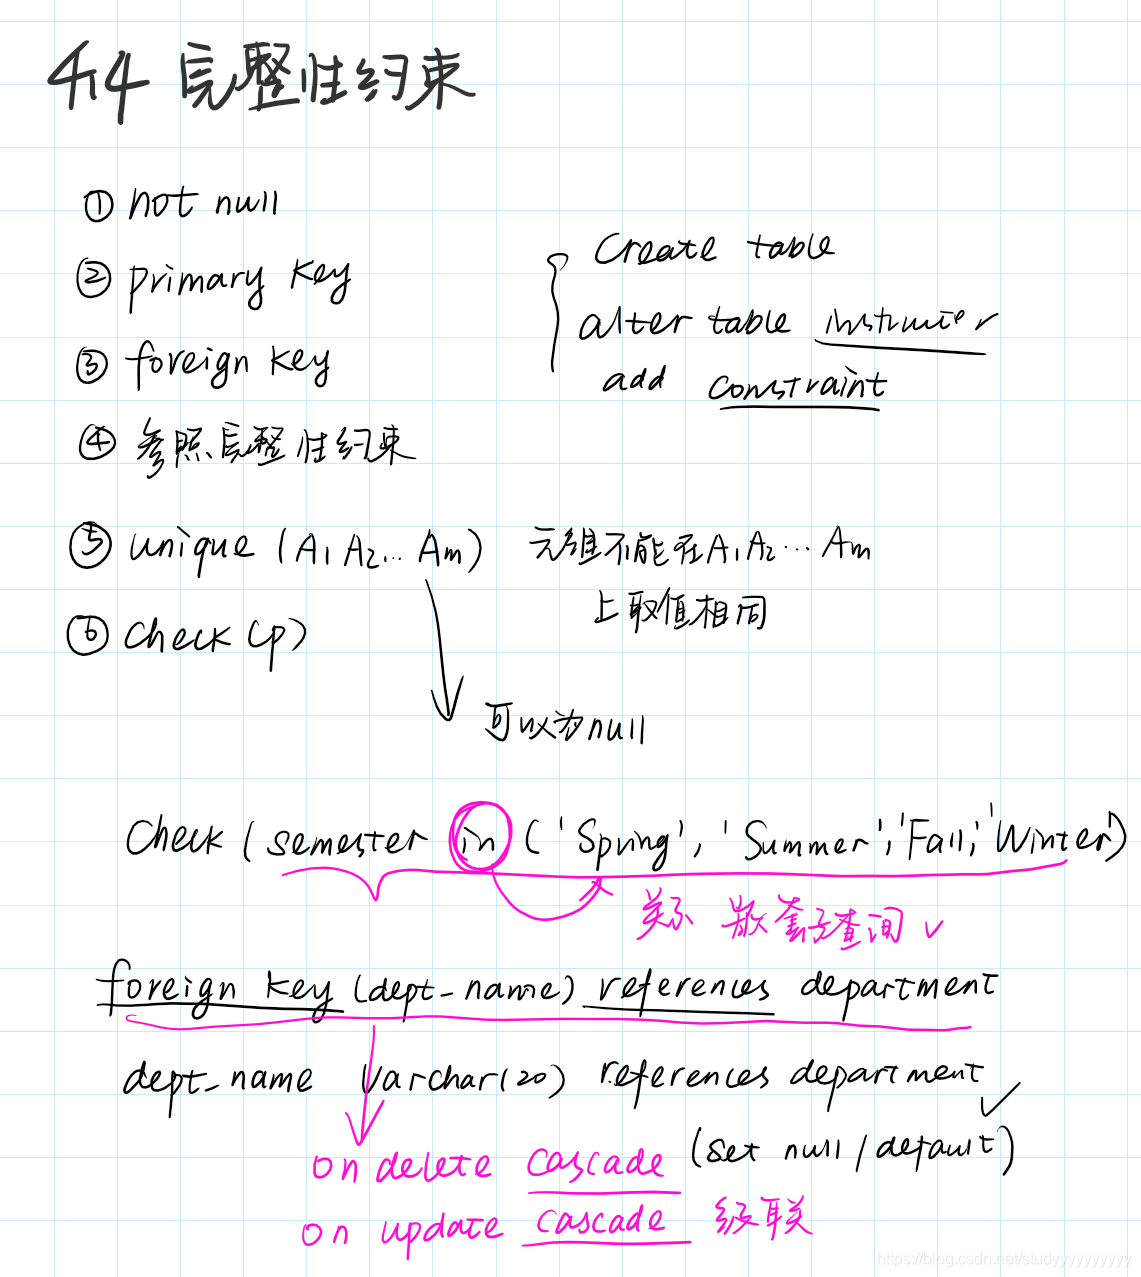 4.4 完整性约束
① not null
② primary key
③ foreign key
④ 参照完整性约束
create table
alter table instructor
add constraint
⑤ unique (A1 A2... Am) 元组不能在A1 A2... Am
上取值相同
⑥ check (p)
可以为null
check (semester in ('Spring', 'Summer', 'Fall', 'Winter')
关系 嵌套子查询 ✓
foreign key (dept_name) references department
dept_name varchar(20) references department
on delete cascade (set null / default) ✓
on update cascade 级联
https://blog.csdn.net/studyyyyyyyyyy